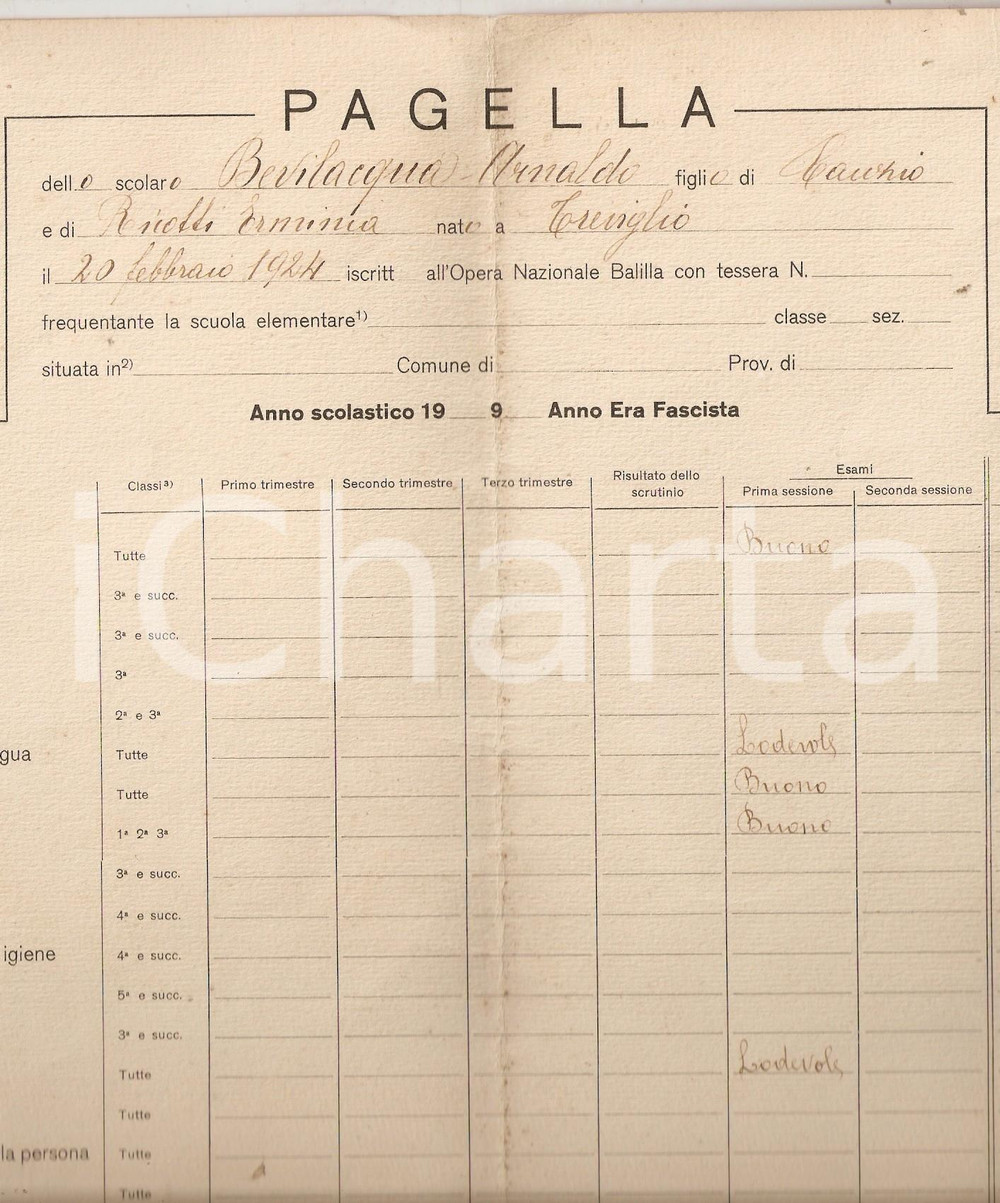 PAGELLA
dello scolaro Bevilacqua Arnaldo figlio di
e di Ricotti Erminia nato a Treviglio
il 20 febbraio 1924 iscritt all'Opera Nazionale Balilla con tessera N.
frequentante la scuola elementare1) classe sez.
situata in2) Comune di Prov. di
Anno scolastico 19 9 Anno Era Fascista
Classi3) Primo trimestre Secondo trimestre Terzo trimestre Risultato dello scrutinio Esami
Prima sessione Seconda sessione
Tutte Buono
3ª e succ.
3ª e succ.
3ª
2ª e 3ª
gua Tutte Lodevole
Tutte Buono
1ª 2ª 3ª Buono
3ª e succ.
4ª e succ.
igiene 4ª e succ.
5ª e succ.
3ª e succ.
Tutte Lodevole
Tutte
la persona Tutte
Tutte
iCharta